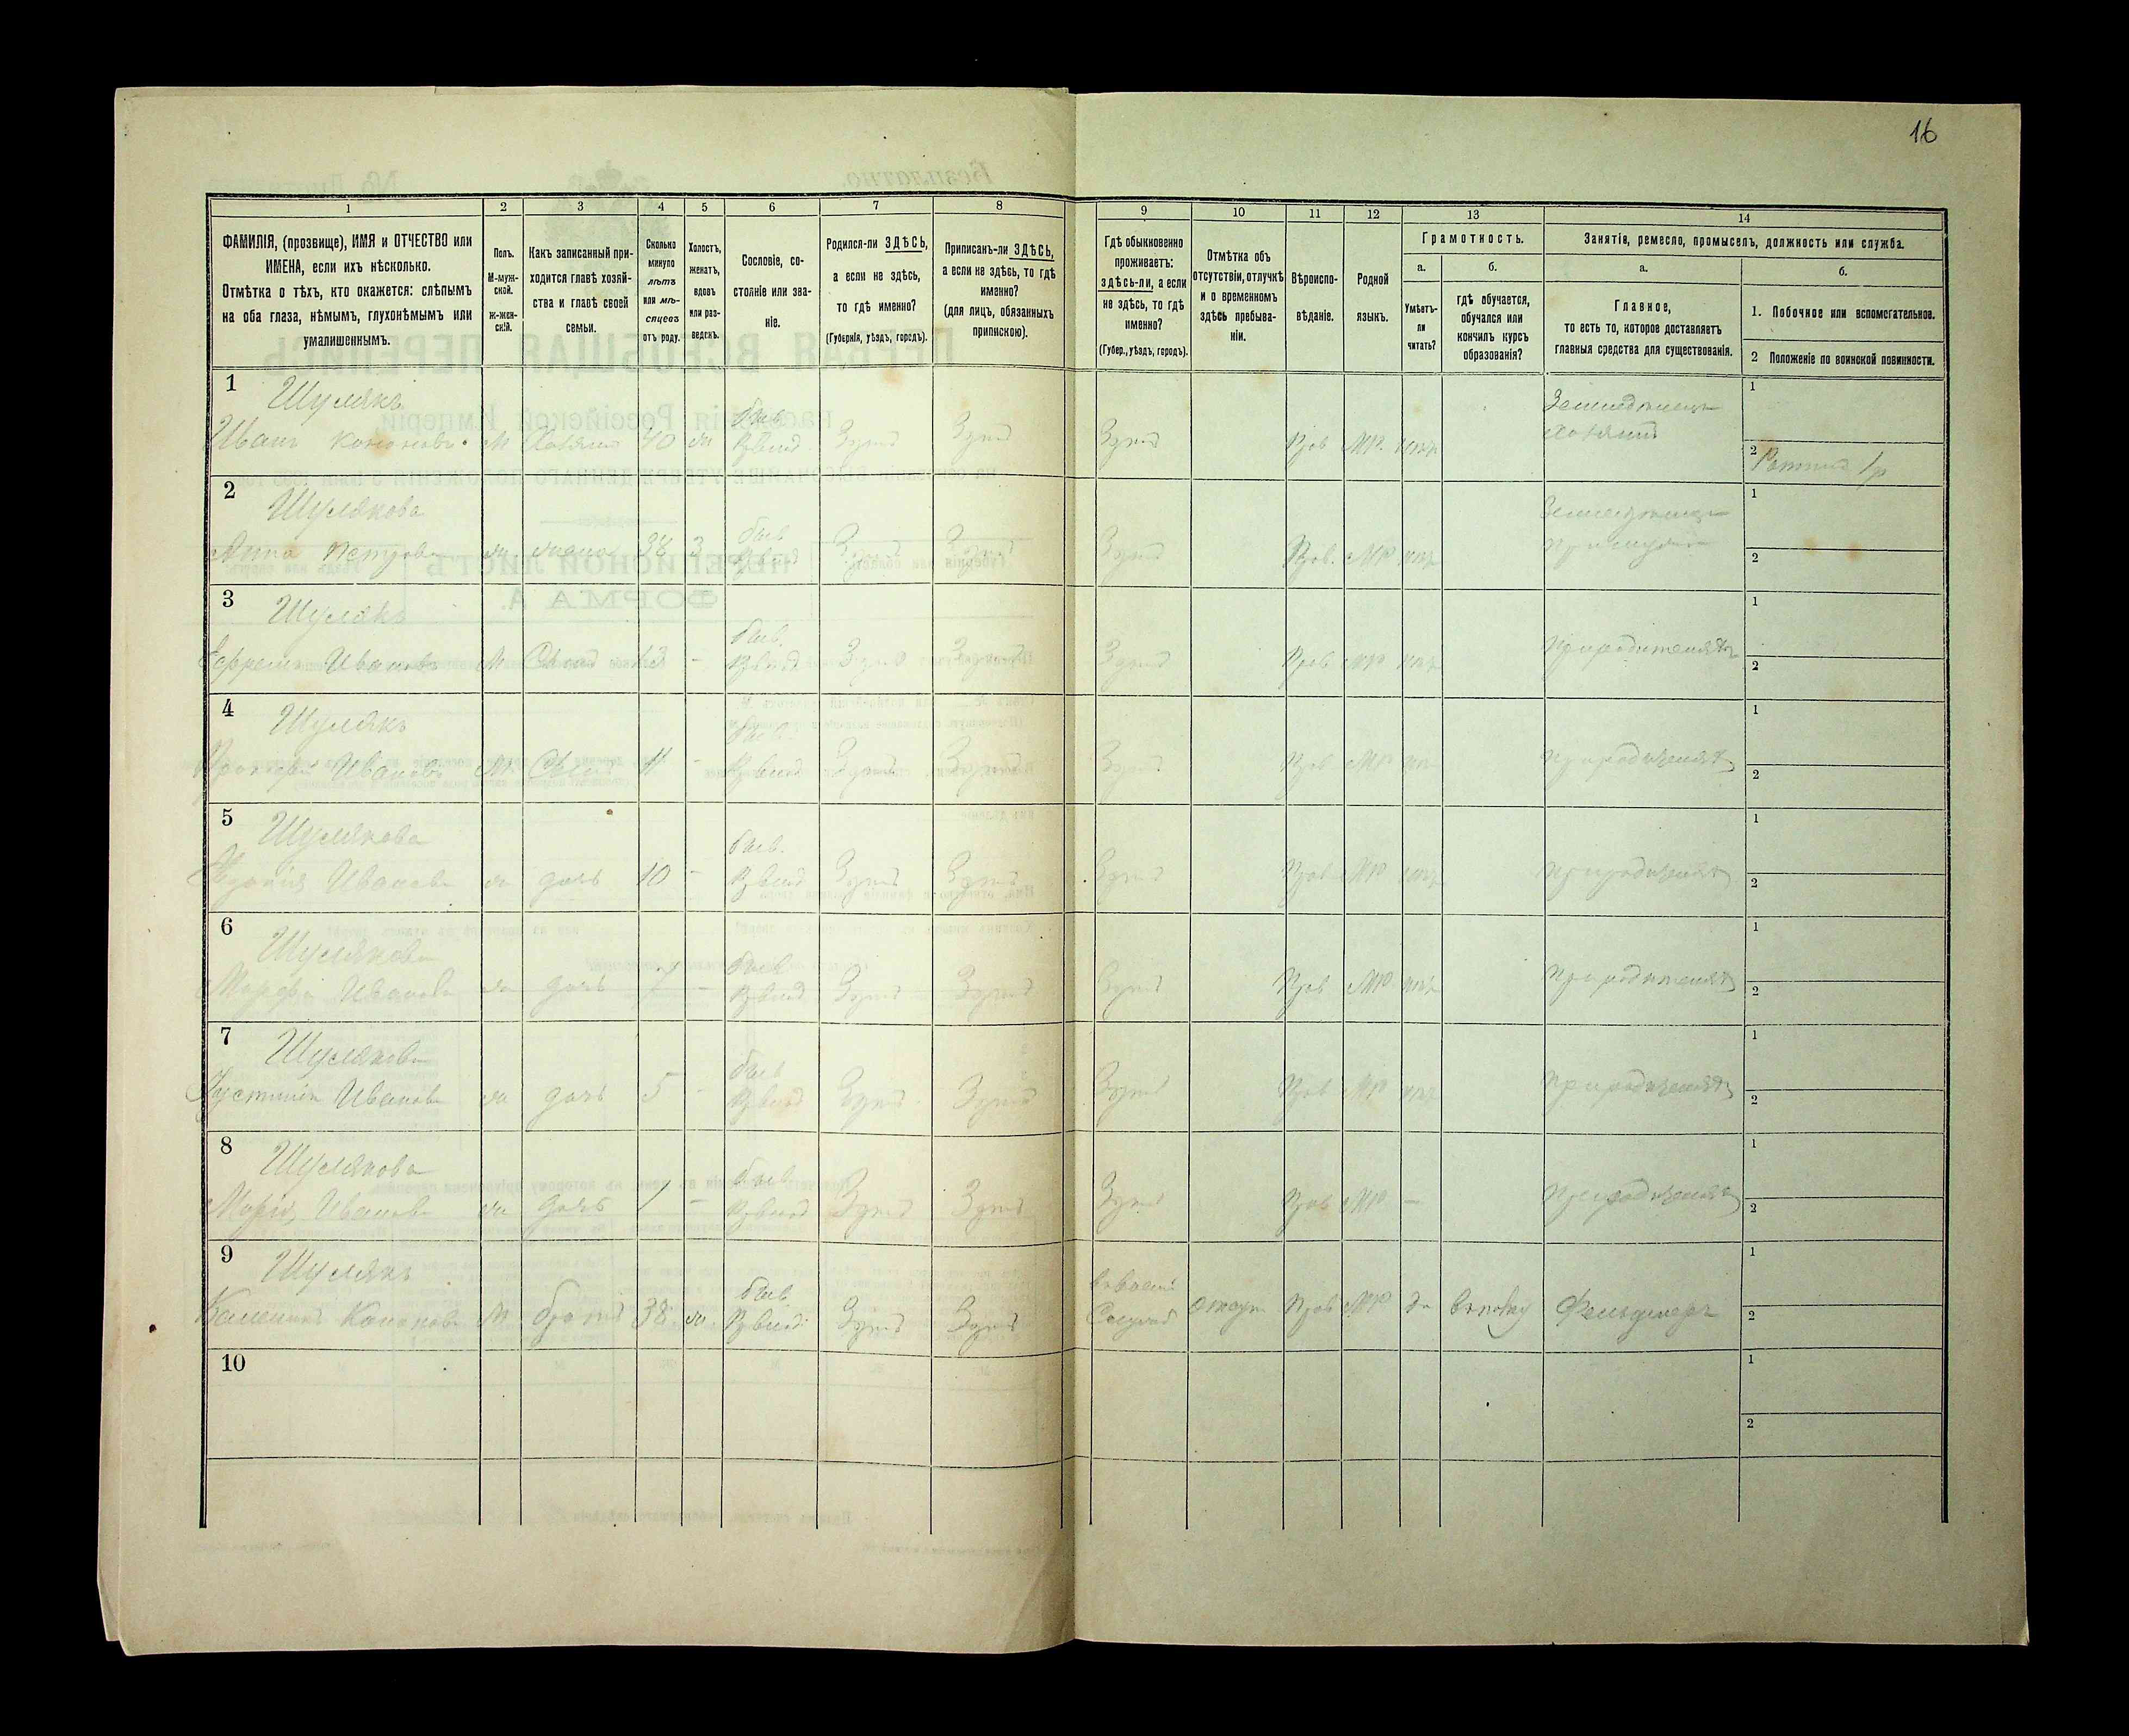 16
1 2 3 4 5 6 7 8 9 10 11 12 13 14
ФАМИЛІЯ, (прозвище), ИМЯ и ОТЧЕСТВО или
ИМЕНА, если ихъ нѣсколько.
Отмѣтка о тѣхъ, кто окажется: слѣпымъ
на оба глаза, нѣмымъ, глухонѣмымъ или
умалишеннымъ.
Полъ.
М-муж-
ской.
Ж-жен-
скій.
Какъ записанный при-
ходится главѣ хозяй-
ства и главѣ своей
семьи.
Сколько
минуло
лѣтъ
или мѣ-
сяцевъ
отъ роду.
Холостъ,
женатъ,
вдовъ
или раз-
веденъ.
Сословіе, со-
стояніе или зва-
ніе.
Родился-ли ЗДѢСЬ,
а если не здѣсь,
то гдѣ именно?
(Губернія, уѣздъ, городъ).
Приписанъ-ли ЗДѢСЬ,
а если не здѣсь, то гдѣ
именно?
(для лицъ, обязанныхъ
припискою).
Гдѣ обыкновенно
проживаетъ:
здѣсь-ли, а если
не здѣсь, то гдѣ
именно?
(Губер., уѣздъ, городъ).
Отмѣтка объ
отсутствіи, отлучкѣ
и о временномъ
здѣсь пребыва-
ніи.
Вѣроиспо-
вѣданіе.
Родной
языкъ.
Грамотность.
а.
Умѣетъ-
ли
читать?
б.
гдѣ обучается,
обучался или
кончилъ курсъ
образованія?
Занятія, ремесло, промыселъ, должность или служба.
а.
Главное,
то есть то, которое доставляетъ
главныя средства для существованія.
б.
1. Побочное или вспомогательное.
2 Положеніе по воинской повинности.
1 Шулякъ
Иванъ Кононовъ м Хозяинъ 40 ж Здѣсь Здѣсь Здѣсь Прав МР. нѣтъ
Земледѣлецъ
хозяинъ
1
2 Ратникъ 1р
2 Шулякова
Анна Петрова ж. жена 38 З Здѣсь Здѣсь Здѣсь Прав. МР нѣтъ
1
2
3 Шулякъ
Ефремъ Ивановъ М Сынъ 13 - Здѣсь Здѣсь Здѣсь Прав МР нѣтъ При родителяхъ
1
2
4 Шулякъ
Прокофій Ивановъ М. Сынъ 11 - Здѣсь Здѣсь Здѣсь Прав МР нѣтъ При родителях
1
2
5 Шулякова
Ивановна ж дочь 10 - Здѣсь Здѣсь Здѣсь Прав МР нѣтъ При родителях
1
2
6 Шулякова
Марфа Иванова ж дочь 7 - Здѣсь Здѣсь Здѣсь Прав МР нѣтъ При родителях
1
2
7 Шулякова
Устинія Иванова ж дочь 5 - Здѣсь Здѣсь Здѣсь Прав МР нѣтъ При родителях
1
2
8 Шулякова
Марія Иванова ж дочь 1 - Здѣсь Здѣсь Здѣсь Прав МР - При родителях
1
2
9 Шулякъ
Кононовъ М. братъ 38. ж. Здѣсь Здѣсь Прав МР да Фельдшеръ
1
2
10
1
2